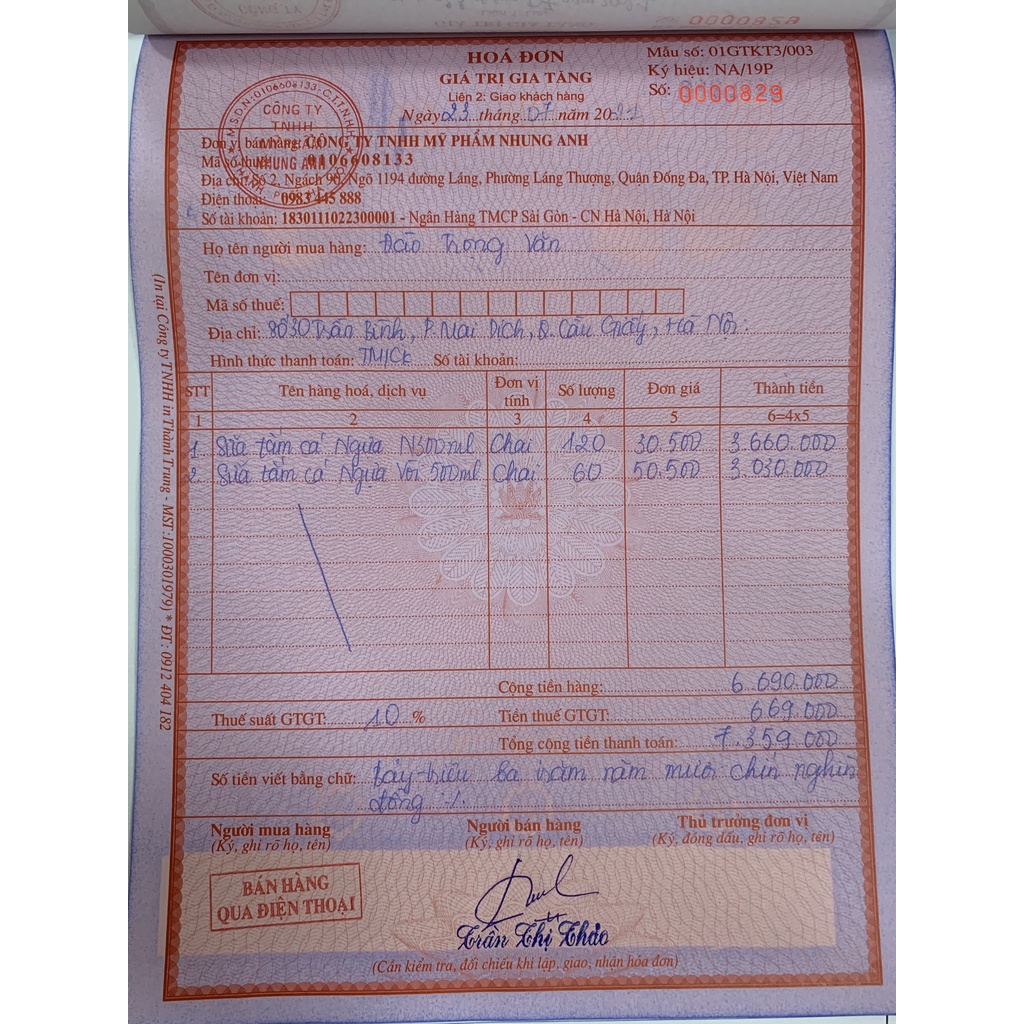 0000828
HOÁ ĐƠN
GIÁ TRỊ GIA TĂNG
Liên 2: Giao khách hàng
Ngày 23 tháng 07 năm 20
Mẫu số: 01GTKT3/003
Ký hiệu: NA/19P
Số: 0000829
M.S.D.N:0106608133-C.T.T.N.H.H
CÔNG TY
TNHH
NHUNG ANH
Đơn vị bán hàng: CÔNG TY TNHH MỸ PHẨM NHUNG ANH
Mã số thuế: 0106608133
Địa chỉ: Số 2, Ngách 90, Ngõ 1194 đường Láng, Phường Láng Thượng, Quận Đống Đa, TP. Hà Nội, Việt Nam
Điện thoại: 0983 445 888
Số tài khoản: 1830111022300001 - Ngân Hàng TMCP Sài Gòn - CN Hà Nội, Hà Nội
Họ tên người mua hàng: Đào Trọng Văn
Tên đơn vị:
Mã số thuế:
Địa chỉ: Trần Bình, P. Mai Dịch, Q. Cầu Giấy, Hà Nội.
Hình thức thanh toán: TM/CK Số tài khoản:
STT Tên hàng hoá, dịch vụ Đơn vị tính Số lượng Đơn giá Thành tiền
1 2 3 4 5 6=4x5
1. Sữa tắm cá Ngựa N300ml Chai 120 30.500 3.660.000
2. Sữa tắm cá Ngựa Vòi 500ml Chai 60 50.500 3.030.000
Cộng tiền hàng: 6.690.000
Thuế suất GTGT: 10 % Tiền thuế GTGT: 669.000
Tổng cộng tiền thanh toán: 7.359.000
Số tiền viết bằng chữ: Bảy triệu ba trăm năm mươi chín nghìn
đồng ./.
Người mua hàng Người bán hàng Thủ trưởng đơn vị
(Ký, ghi rõ họ, tên) (Ký, ghi rõ họ, tên) (Ký, đóng dấu, ghi rõ họ, tên)
BÁN HÀNG
QUA ĐIỆN THOẠI
Trần Thị Thảo
(Cần kiểm tra, đối chiếu khi lập, giao, nhận hóa đơn)
(In tại Công ty TNHH in Thành Trung - MST: 1000301979) * ĐT: 0912 404 182